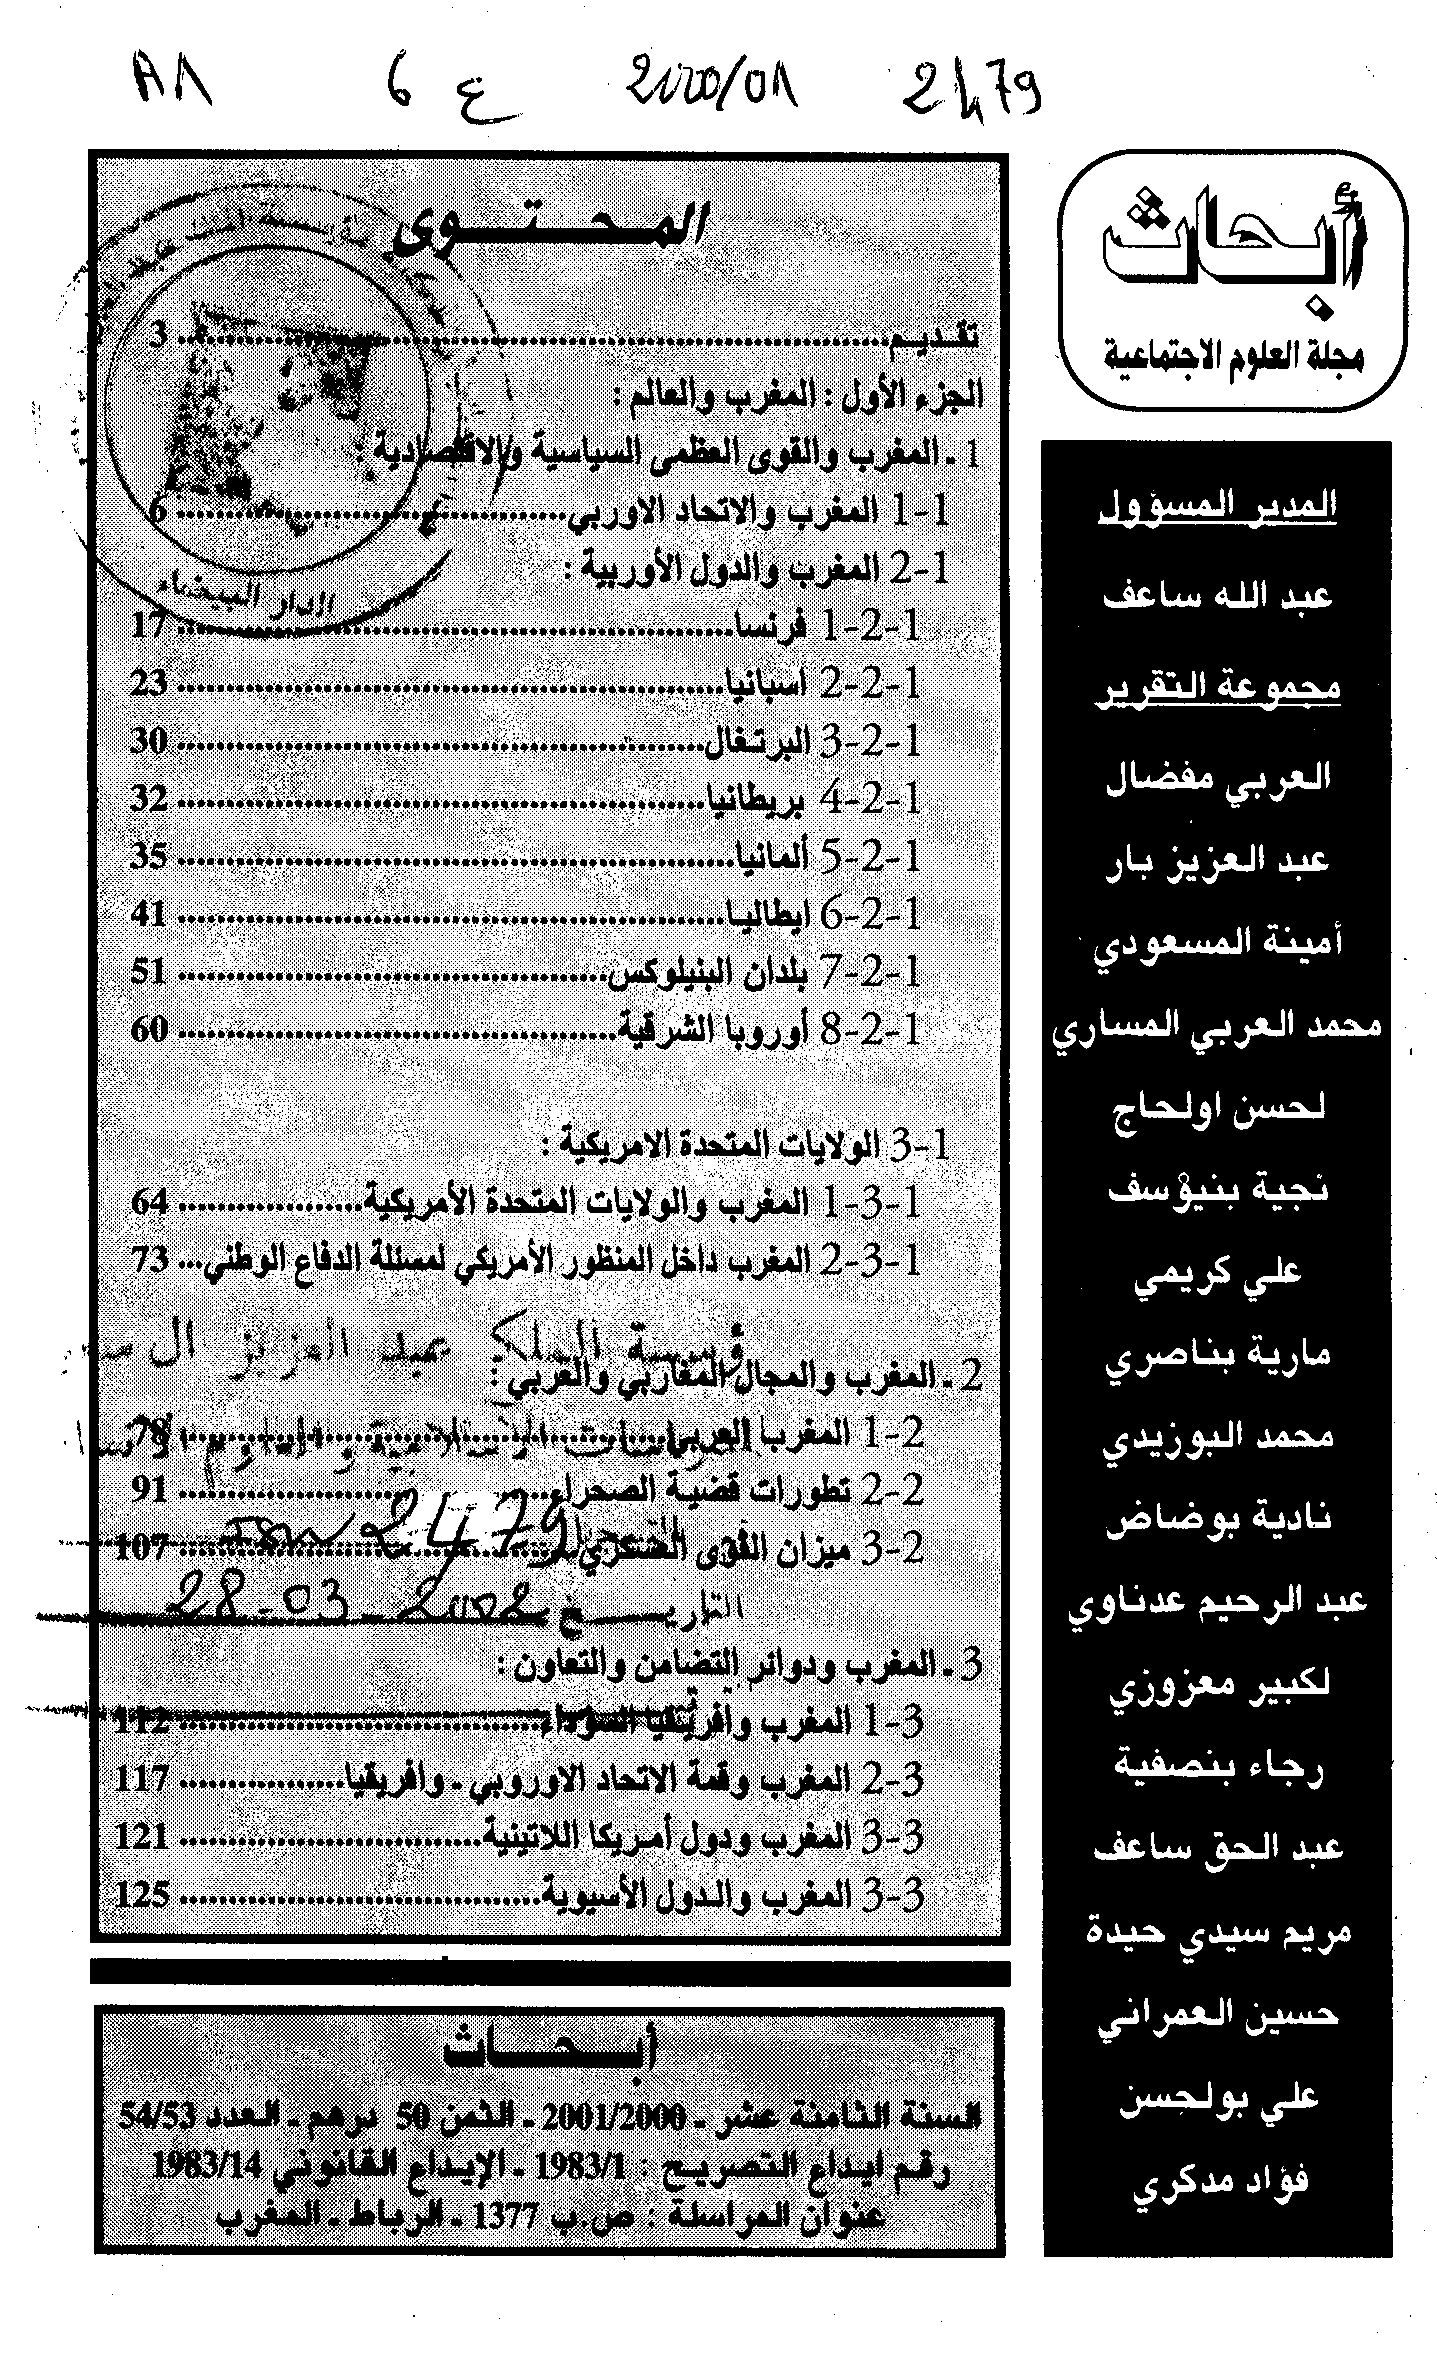 A1 6 ع 2000/01 2479
أبحاث
مجلة العلوم الاجتماعية
المدير المسؤول
عبد الله ساعف
مجموعة التقرير
العربي مفضال
عبد العزيز بار
أمينة المسعودي
محمد العربي المساري
لحسن اولحاج
نجية بنيؤسف
علي كريمي
مارية بناصري
محمد البوزيدي
نادية بوضاض
عبد الرحيم عدناوي
لكبير معزوزي
رجاء بنصفية
عبد الحق ساعف
مريم سيدي حيدة
حسين العمراني
علي بولحسن
فؤاد مدكري
المحتوى
تقديم 3
الجزء الأول : المغرب والعالم :
1 ـ المغرب والقوى العظمى السياسية والاقتصادية :
1-1 المغرب والاتحاد الاوربي 6
2-1 المغرب والدول الأوربية :
1-2-1 فرنسا 17
2-2-1 اسبانيا 23
3-2-1 البرتغال 30
4-2-1 بريطانيا 32
5-2-1 ألمانيا 35
6-2-1 ايطاليا 41
7-2-1 بلدان البنيلوكس 51
8-2-1 أوروبا الشرقية 60
3-1 الولايات المتحدة الامريكية :
1-3-1 المغرب والولايات المتحدة الأمريكية 64
2-3-1 المغرب داخل المنظور الأمريكي لمسئلة الدفاع الوطني... 73
الملك عبد العزيز ال
2 ـ المغرب والمجال المغاربي والعربي :
1-2 المغرب العربي 78
2-2 تطورات قضية الصحراء 91
2479
3-2 ميزان القوى العسكري 107
التاريخ 28-03-2002
3 ـ المغرب ودوائر التضامن والتعاون :
1-3 المغرب وافريقيا السوداء 112
2-3 المغرب وقمة الاتحاد الاوروبي ـ وافريقيا 117
3-3 المغرب ودول أمريكا اللاتينية 121
3-3 المغرب والدول الأسيوية 125
الدار البيضاء
أبحاث
السنة الثامنة عشر ـ 2001/2000 ـ الثمن 50 درهم ـ العدد 54/53
رقم ايداع التصريح : 1983/1 ـ الإيداع القانوني 1983/14
عنوان المراسلة : ص.ب 1377 ـ الرباط ـ المغرب